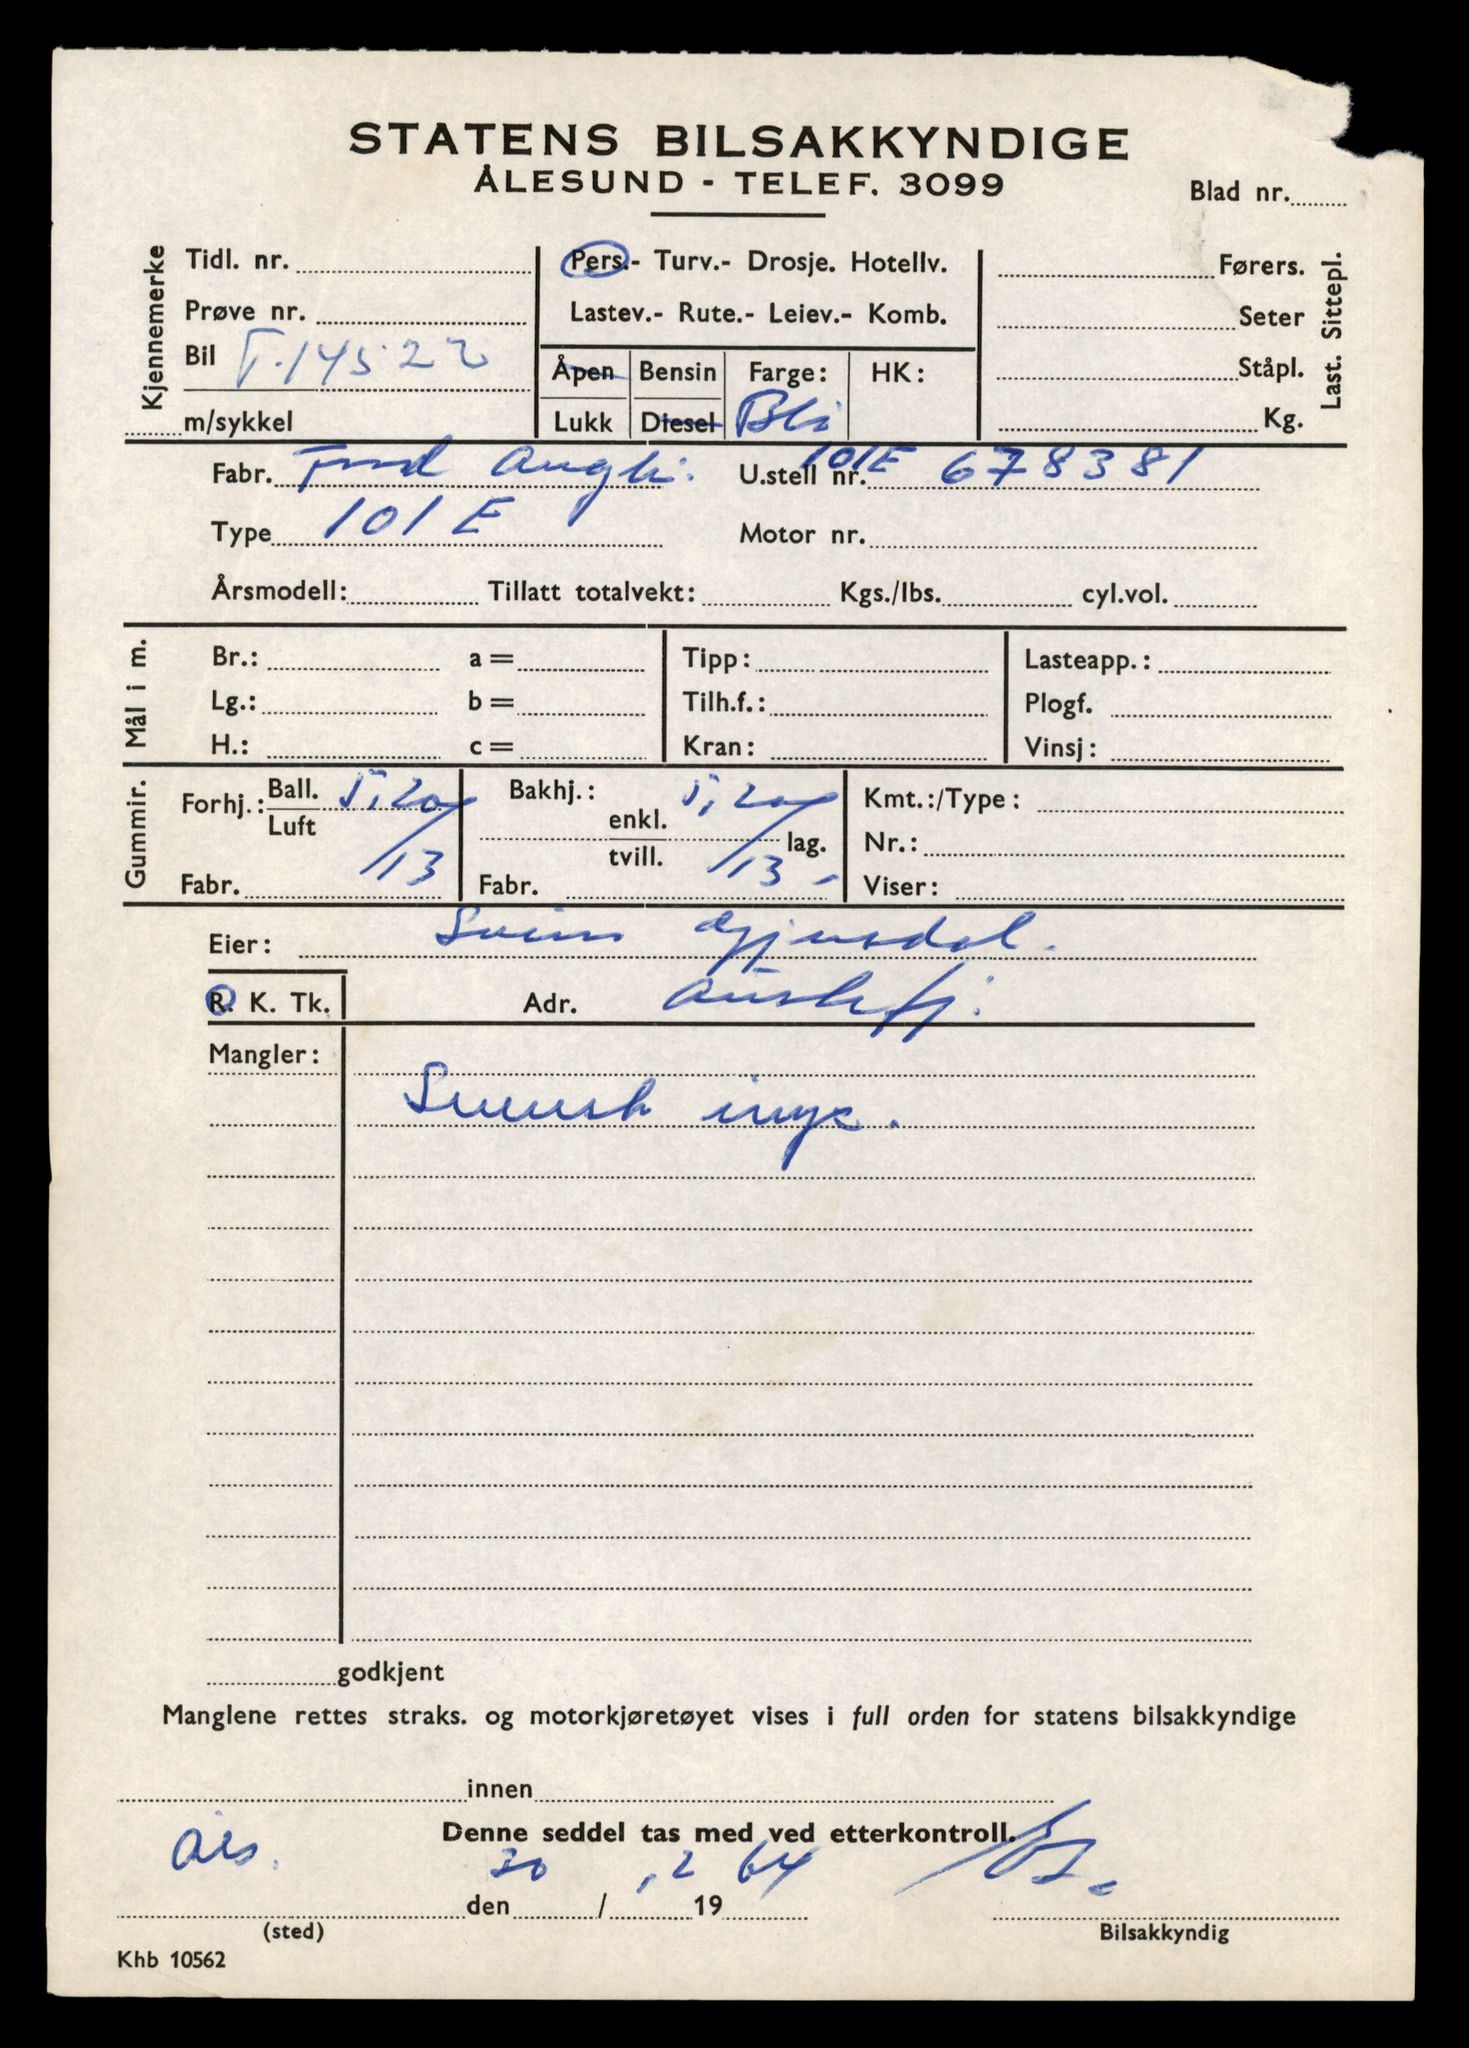 STATENS BILSAKKYNDIGE
ÅLESUND - TELEF. 3099
Blad nr.
Kjennemerke
Tidl. nr.
Prøve nr.
Bil T.14522
m/sykkel
Pers.- Turv.- Drosje. Hotellv.
Lastev.- Rute.- Leiev.- Komb.
Åpen Bensin Farge: HK:
Lukk Diesel
Førers.
Seter
Ståpl.
Kg.
Last. Sittepl.
Fabr. Ford U.stell nr. 101E 678381
Type 101 E Motor nr.
Årsmodell: Tillatt totalvekt: Kgs./lbs. cyl.vol.
Mål i m.
Br.: a = Tipp: Lasteapp.:
Lg.: b = Tilh.f.: Plogf.
H.: c = Kran: Vinsj:
Gummir.
Forhj.: Ball. 5,20/13
Luft
Fabr.
Bakhj.: 5,20/13
enkl.
tvill. lag.
Fabr.
Kmt.:/Type:
Nr.:
Viser:
Eier:
R. K. Tk. Adr.
Mangler:
godkjent
Manglene rettes straks. og motorkjøretøyet vises i full orden for statens bilsakkyndige
innen
Denne seddel tas med ved etterkontroll.
den / 2 1964
(sted) Bilsakkyndig
Khb 10562